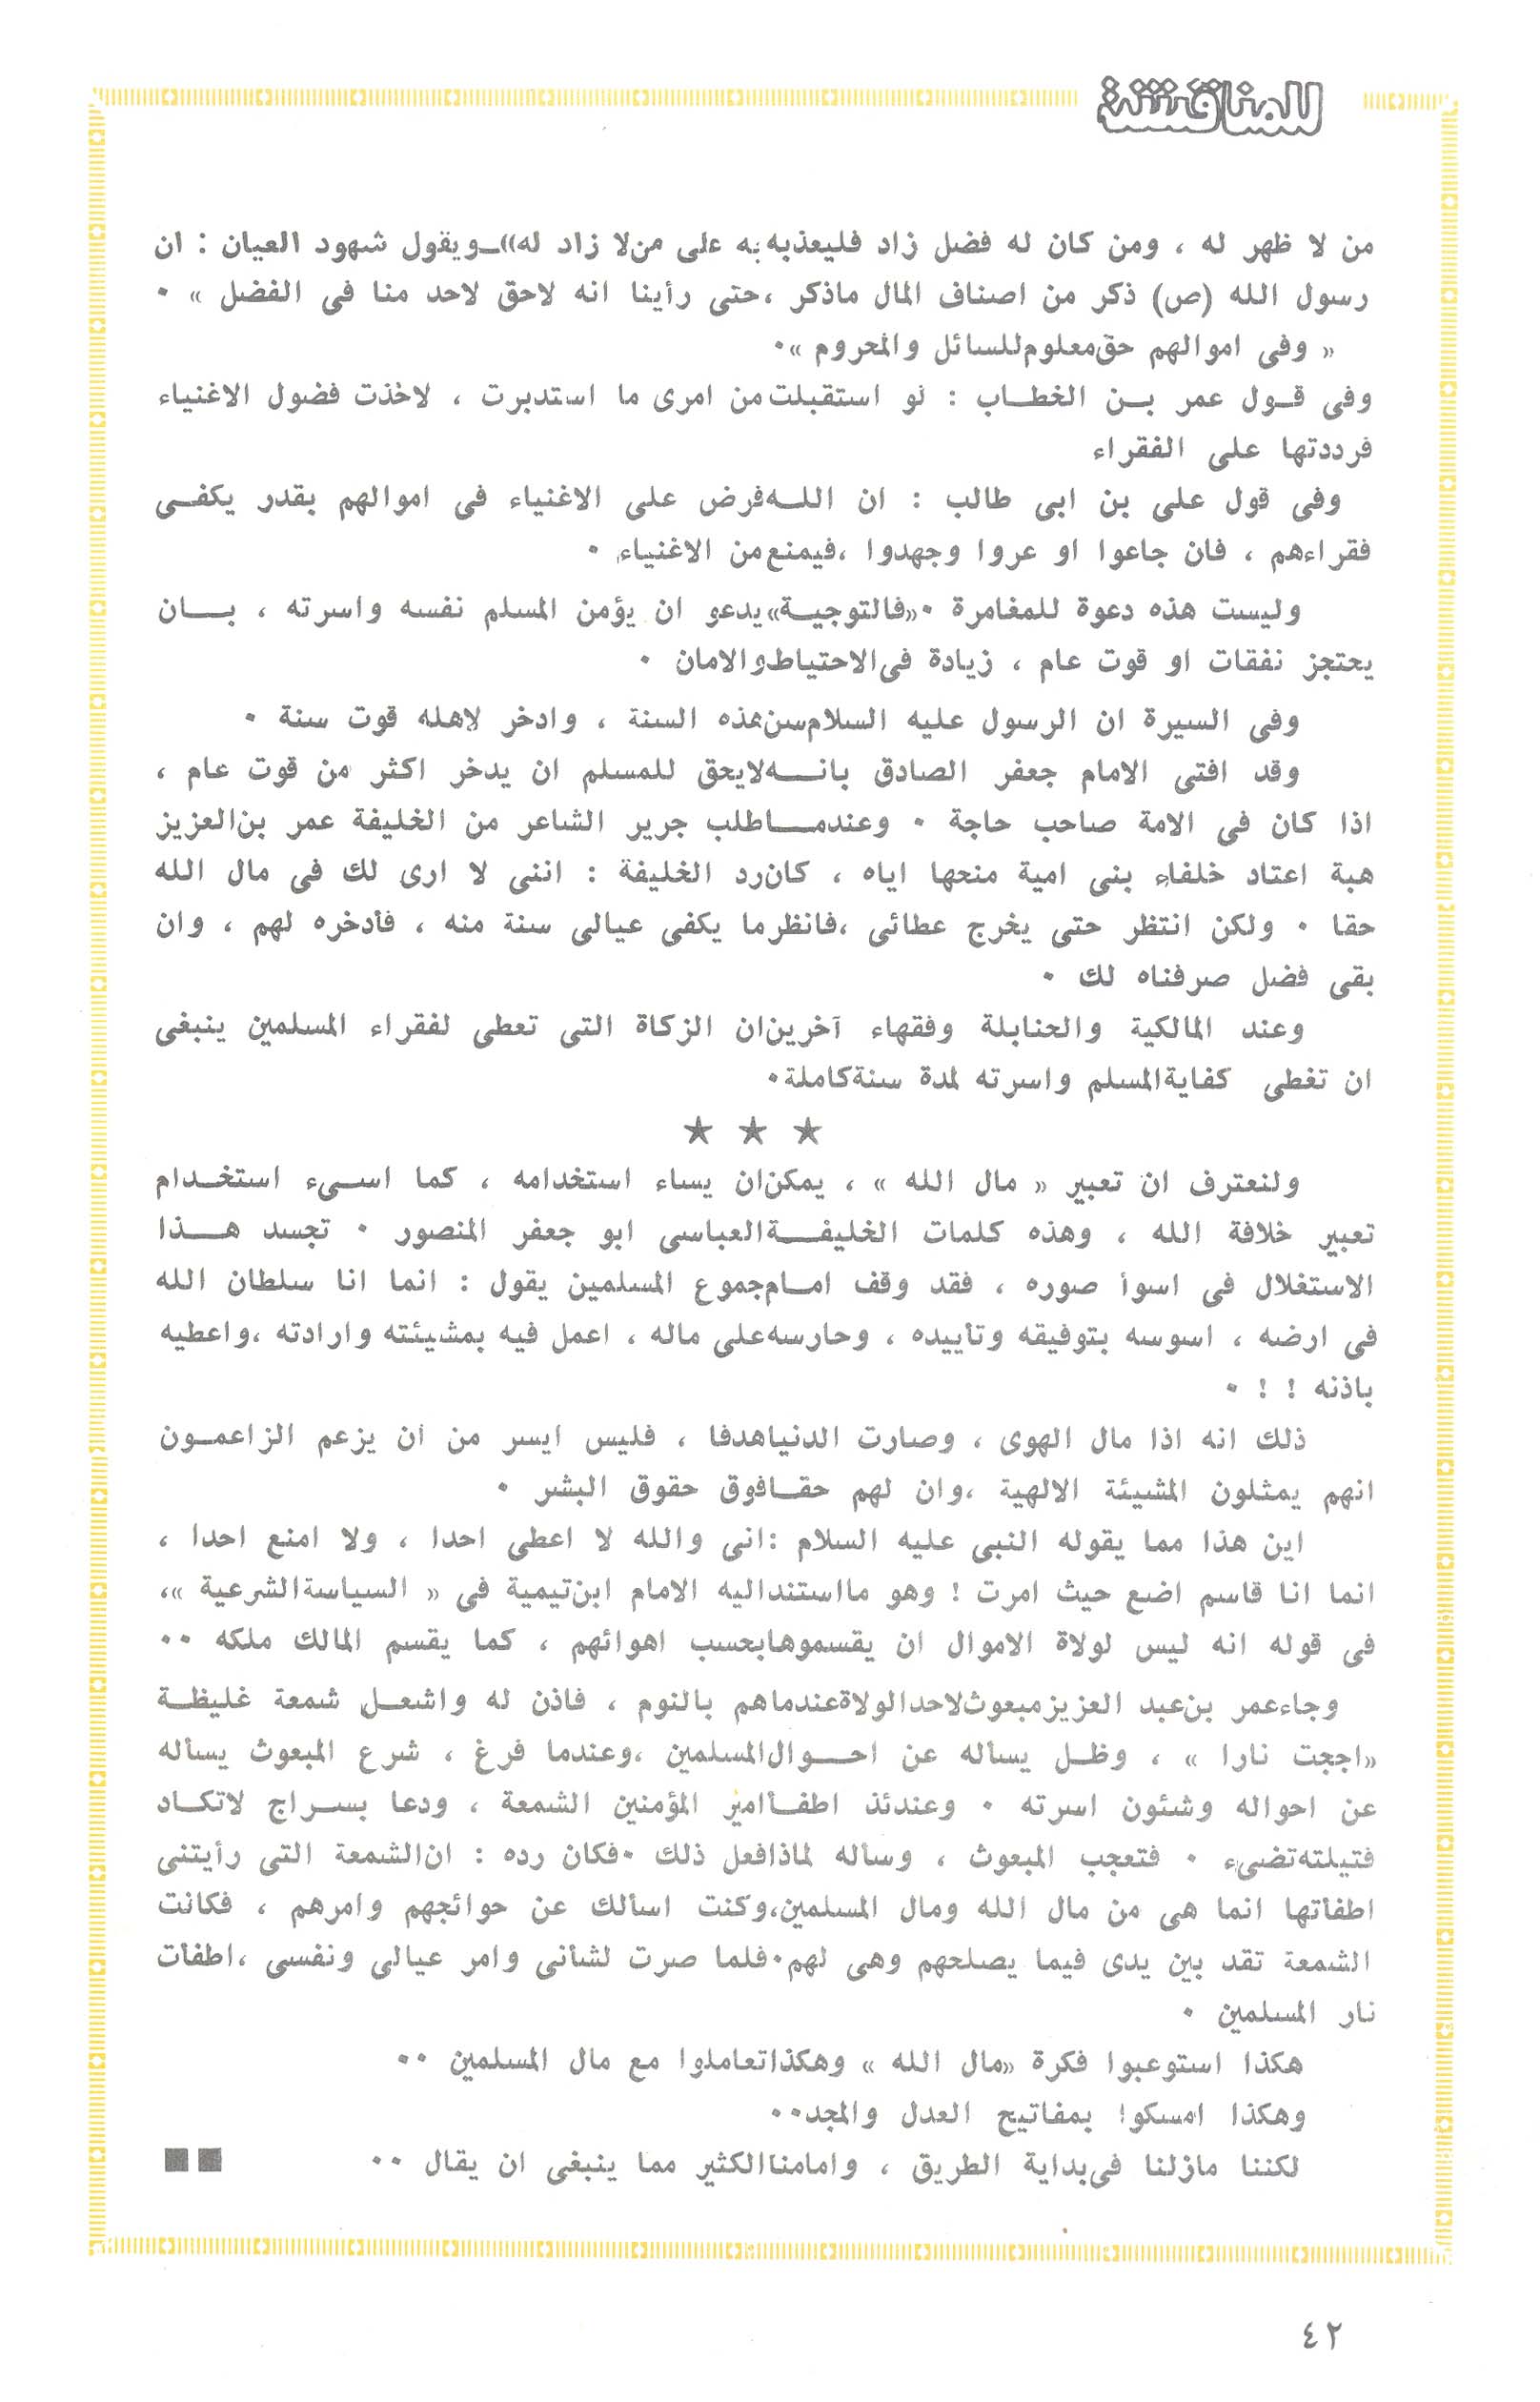 للمناقشة
من لا ظهر له ، ومن كان له فضل زاد فليعذبه به على من لا زاد له» ــ ويقول شهود العيان : ان
رسول الله (ص) ذكر من اصناف المال ماذكر ، حتى رأينا انه لاحق لاحد منا فى الفضل » ٠
« وفى اموالهم حق معلوم للسائل والمحروم »٠
وفى قول عمر بن الخطاب : لو استقبلت من امرى ما استدبرت ، لاخذت فضول الاغنياء
فرددتها على الفقراء
وفى قول على بن ابى طالب : ان الله فرض على الاغنياء فى اموالهم بقدر يكفى
فقراءهم ، فان جاعوا او عروا وجهدوا ، فيمنع من الاغنياء ٠
وليست هذه دعوة للمغامرة ٠ «فالتوجية» يدعو ان يؤمن المسلم نفسه واسرته ، بان
يحتجز نفقات او قوت عام ، زيادة فى الاحتياط والامان ٠
وفى السيرة ان الرسول عليه السلام سن هذه السنة ، وادخر لاهله قوت سنة ٠
وقد افتى الامام جعفر الصادق بانه لايحق للمسلم ان يدخر اكثر من قوت عام ،
اذا كان فى الامة صاحب حاجة ٠ وعندما طلب جرير الشاعر من الخليفة عمر بن العزيز
هبة اعتاد خلفاء بنى امية منحها اياه ، كان رد الخليفة : اننى لا ارى لك فى مال الله
حقا ٠ ولكن انتظر حتى يخرج عطائى ، فانظر ما يكفى عيالى سنة منه ، فأدخره لهم ، وان
بقى فضل صرفناه لك ٠
وعند المالكية والحنابلة وفقهاء آخرين ان الزكاة التى تعطى لفقراء المسلمين ينبغى
ان تغطى كفاية المسلم واسرته لمدة سنة كاملة٠
★ ★ ★
ولنعترف ان تعبير « مال الله » ، يمكن ان يساء استخدامه ، كما اسىء استخدام
تعبير خلافة الله ، وهذه كلمات الخليفة العباسى ابو جعفر المنصور ٠ تجسد هذا
الاستغلال فى اسوأ صوره ، فقد وقف امام جموع المسلمين يقول : انما انا سلطان الله
فى ارضه ، اسوسه بتوفيقه وتأييده ، وحارسه على ماله ، اعمل فيه بمشيئته وارادته ، واعطيه
باذنه ! ! ٠
ذلك انه اذا مال الهوى ، وصارت الدنيا هدفا ، فليس ايسر من ان يزعم الزاعمون
انهم يمثلون المشيئة الالهية ، وان لهم حقا فوق حقوق البشر ٠
اين هذا مما يقوله النبى عليه السلام : انى والله لا اعطى احدا ، ولا امنع احدا ،
انما انا قاسم اضع حيث امرت ! وهو ما استند اليه الامام ابن تيمية فى « السياسة الشرعية »،
فى قوله انه ليس لولاة الاموال ان يقسموها بحسب اهوائهم ، كما يقسم المالك ملكه ٠٠
وجاء عمر بن عبد العزيز مبعوث لاحد الولاة عندما هم بالنوم ، فاذن له واشعل شمعة غليظة
«اججت نارا » ، وظل يسأله عن احوال المسلمين ، وعندما فرغ ، شرع المبعوث يسأله
عن احواله وشئون اسرته ٠ وعندئذ اطفأ امير المؤمنين الشمعة ، ودعا بسراج لاتكاد
فتيلته تضىء ٠ فتعجب المبعوث ، وسأله لماذا فعل ذلك ٠ فكان رده : ان الشمعة التى رأيتنى
اطفاتها انما هى من مال الله ومال المسلمين، وكنت اسألك عن حوائجهم وامرهم ، فكانت
الشمعة تقد بين يدى فيما يصلحهم وهى لهم٠ فلما صرت لشأنى وامر عيالى ونفسى ، اطفأت
نار المسلمين ٠
هكذا استوعبوا فكرة «مال الله » وهكذا تعاملوا مع مال المسلمين ٠٠
وهكذا امسكوا بمفاتيح العدل والمجد٠٠
لكننا مازلنا فى بداية الطريق ، وامامنا الكثير مما ينبغى ان يقال ٠٠ ■■
٤٢